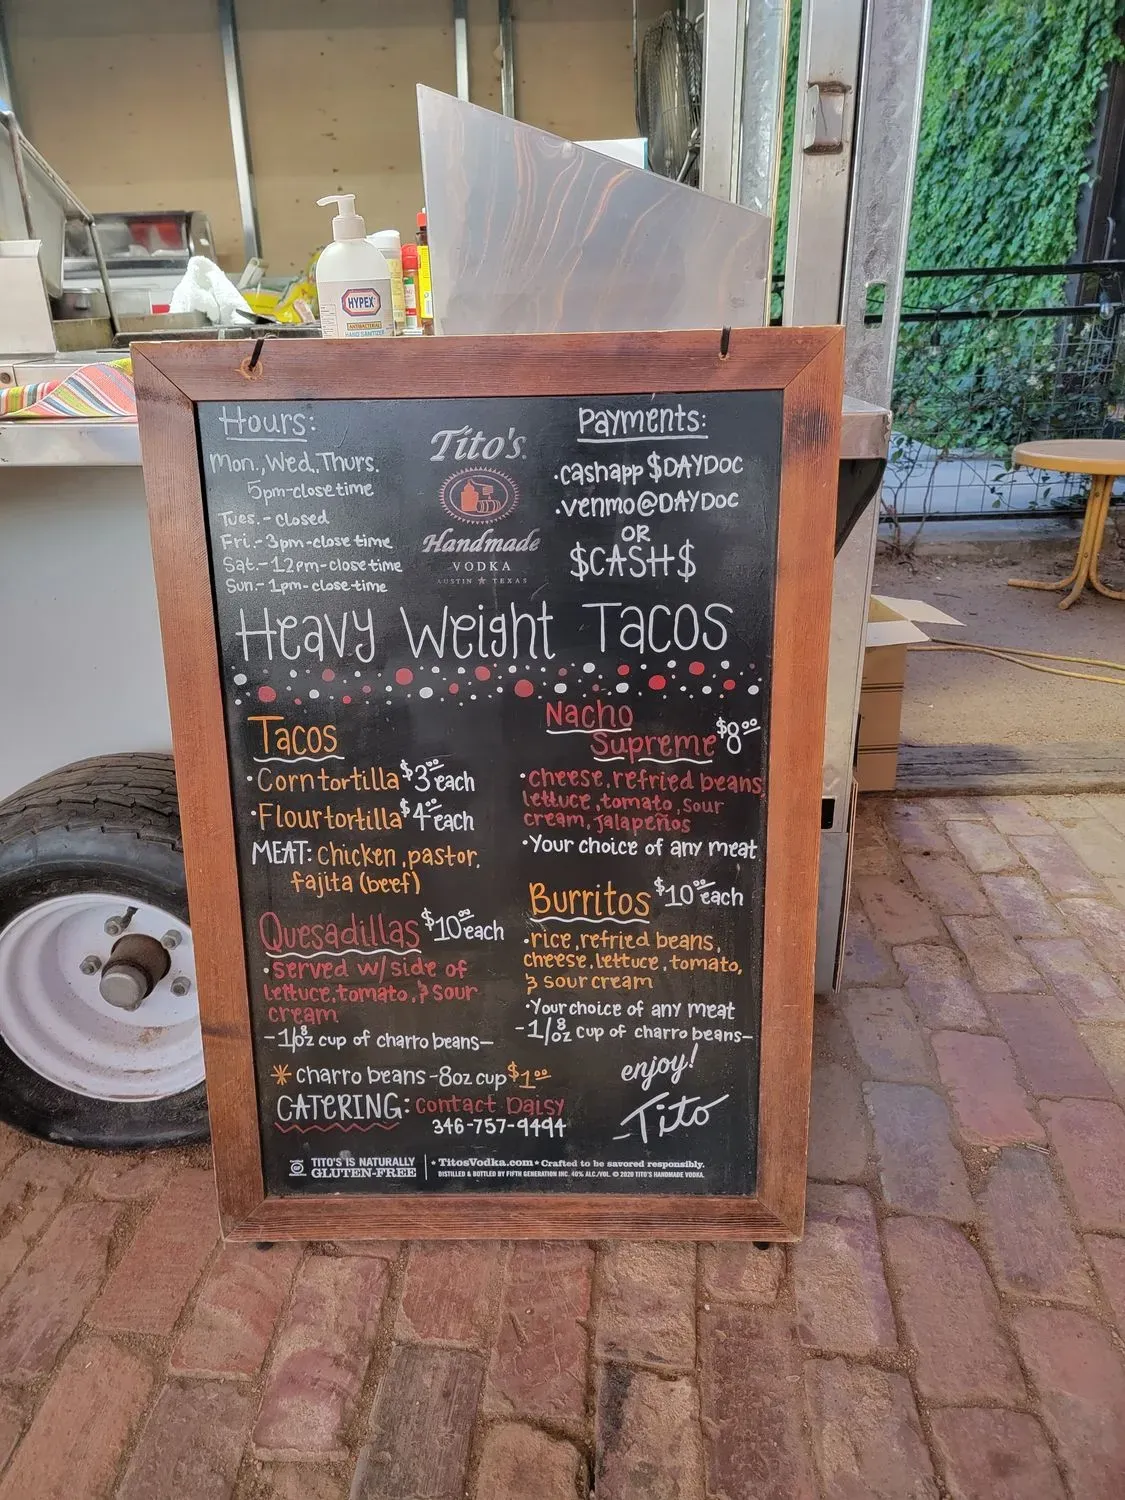 HYPEX
ANTIBACTERIAL
HAND SANITIZER
Hours:
Mon., Wed., Thurs.
5pm-close time
Tues. - closed
Fri. - 3pm - close time
Sat. - 12pm - close time
Sun. - 1pm - close time
Tito's
Handmade
VODKA
AUSTIN ★ TEXAS
Payments:
• cashapp $DAYDOC
• venmo@DAYDOC
OR
$CASH$
Heavy Weight Tacos
Tacos
• Corn tortilla $3.00 each
• Flour tortilla $4.00 each
MEAT: Chicken, pastor,
fajita (beef)
Quesadillas $10.00 each
• served w/ side of
lettuce, tomato, & sour
cream
- 1/8oz cup of charro beans -
Nacho
Supreme $8.00
• cheese, refried beans
lettuce, tomato, sour
cream, jalapeños
• Your choice of any meat
Burritos $10.00 each
• rice, refried beans,
cheese, lettuce, tomato,
& sour cream
• Your choice of any meat
- 1/8oz cup of charro beans -
* charro beans - 8oz cup $1.00
CATERING: contact Daisy
346-757-9494
enjoy!
- Tito
TITO'S IS NATURALLY
GLUTEN-FREE
★ TitosVodka.com ★ Crafted to be savored responsibly.
DISTILLED & BOTTLED BY FIFTH GENERATION INC. 40% ALC./VOL. © 2020 TITO'S HANDMADE VODKA.